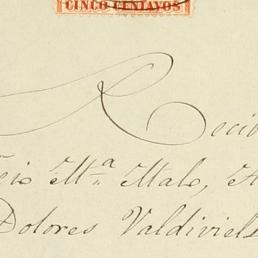 CINCO CENTAVOS
Recib
cio Mª Malo, A
Dolores Valdiviels